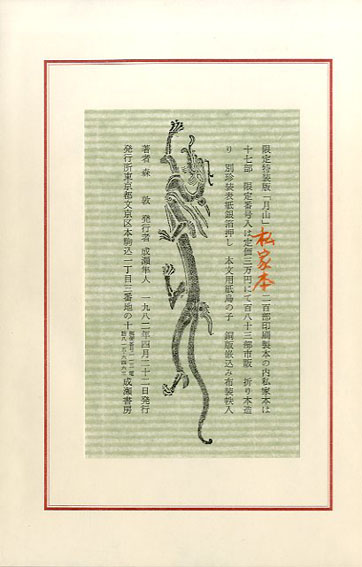 限定特装版「月山」二百部印刷製本の内私家本は
私家本
十七部 限定番号入は定価三万円にて百八十三部市販 折り本造
り 別珍装表紙銀箔押し 本文用紙鳥の子 銅版嵌込み布装帙入
著者 森 敦 発行者 成瀬隼人 一九八二年四月二十二日発行
発行所東京都文京区本駒込二丁目三番地の十 成瀬書房